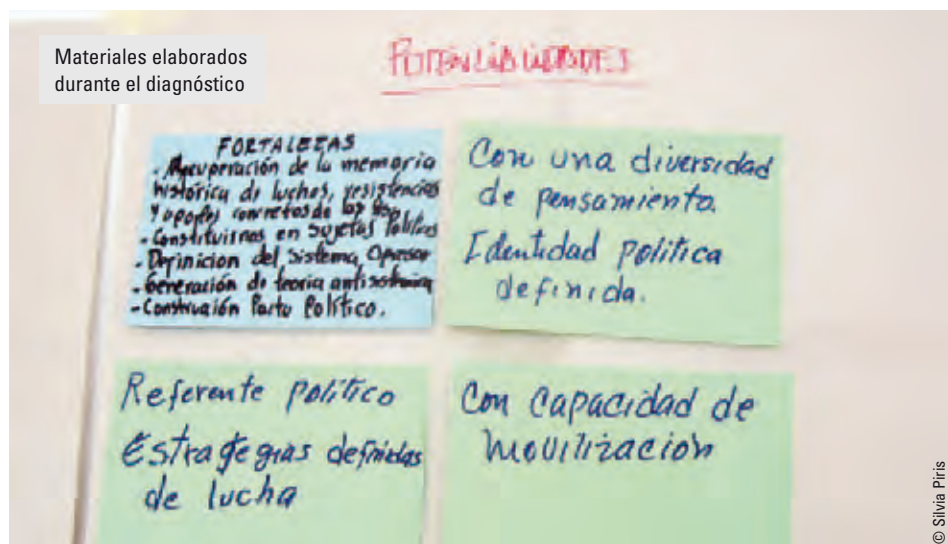 Materiales elaborados
durante el diagnóstico
POTENCIALIDADES
FORTALEZAS
- Recuperación de la memoria
histórica de luchas, resistencias
y aportes concretos de las
- Constituirnos en sujetas Políticas
- Definicion del Sistema Opresor
- Generación de teoria antisistemica
- Construción Pacto Político.
Con una diversidad
de pensamiento.
Identidad política
definida.
Referente político
Estrategias definidas
de lucha
Con capacidad de
movilización
© Silvia Piris